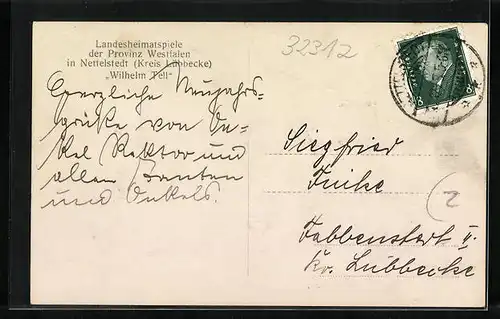 Landesheimatspiele
der Provinz Westfalen
in Nettelstedt (Kreis Lübbecke)
„Wilhelm Tell“
32312
Herzliche Neujahrs-
grüße von On-
kel Rektor und
allen Tanten
und Onkels.
Siegfried
2
Fabbenstedt
Kr. Lübbecke